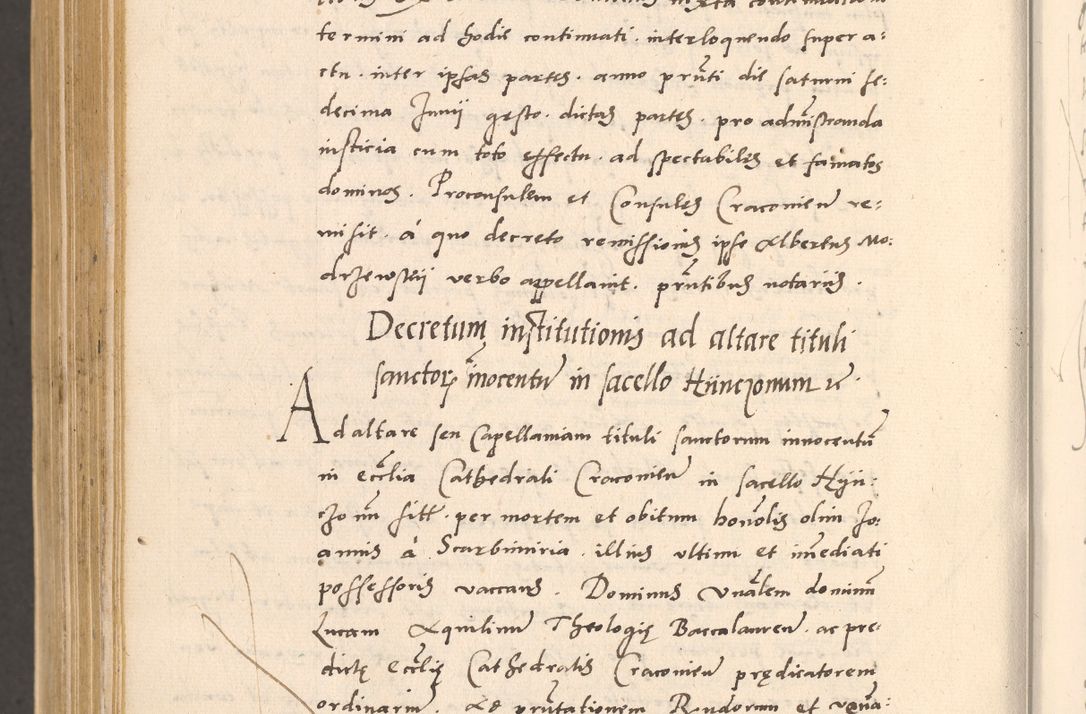 termini ad hodie continuati. interloquendo super a:
ctu. inter ipsas partes. anno prnti die saturni se:
decima Junij gesto. dictas partes. pro admistranda
iusticia cum toto effectu. ad spectabiles et famatos
dominos. Proconsulem et Consules Cracovien re:
misit. á quo decreto remissionis ipse Albertus Mo:
drzewskij verbo appellavit. prntibus notariis.
Decretum institutionis ad altare tituli
sanctor inocentu in sacello Hijnczonum
Ad altare seu Capellaniam tituli sanctorum innocentu
in ecclia Cathedrali Cracovien in sacello Hijn:
czonu sitt. per mortem et obitum honolis olim Jo:
annis á Scarbimiria. illius ultimi et imediati
possessoris vaccans. Dominus Vnalem dominu
Lucam Aquilinu Theologię Baccalaureu. ac pre:
dictę ecclię Cathedralis Cracovien prędicatorem
ordinariu. Ad prntationem Rndorum et vena: